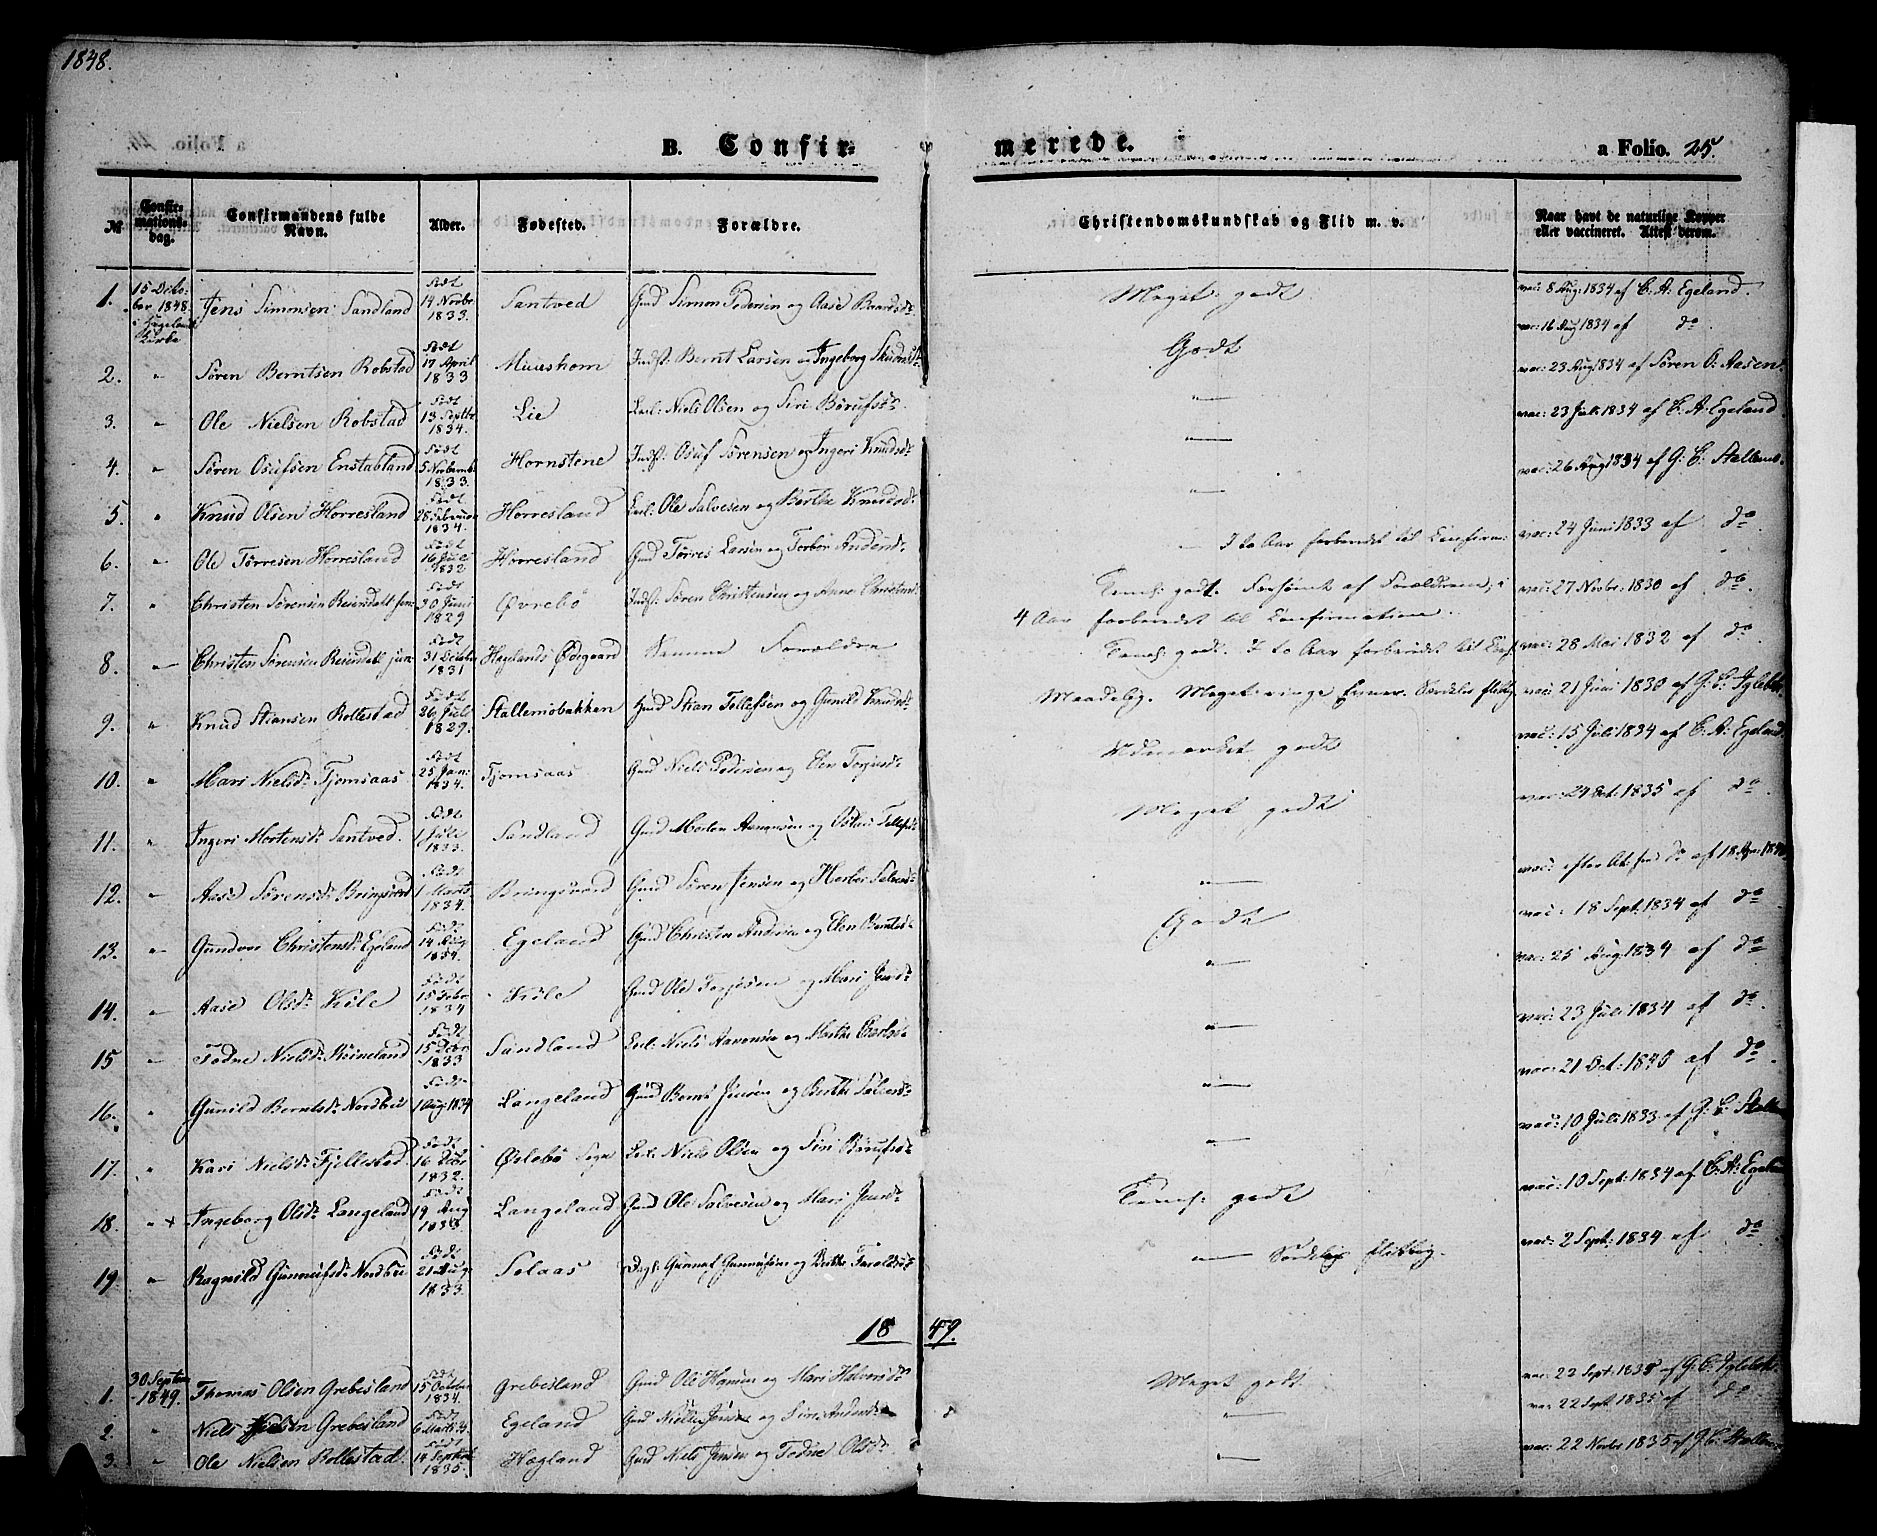 1848.
B. Confir-
merede.
a Folio. 25.
№
Confir-
mations-
dag.
Confirmandens fulde
Navn.
Alder.
Fødested.
Forældre.
Christendomskundskab og Flid m. v.
Naar havt de naturlige Kopper
eller vaccineret. Attest derom.
1. 15 Octo-
ber 1848
i Hægeland
Kirke
Jens Simonsen Sandland Født
14 Novbr.
1833. Santved Gmd Simon Pedersen og Aase Baardsdr Meget godt vac: 8 Aug: 1834 af C. A: Egeland.
2. " Søren Berntsen Robstad Født
17 April
1833 Muushom Indst: Bernt Larsen og Ingeborg Godt vac: 16 Aug 1834 af do
3. " Ole Nielsen Robstad Født
13 Septbr
1834. Lie Niels Olsen og Siri " vac: 23 Aug 1834 af Søren O: Aasen.
4. " Søren Osufsen Enstabland Født
5 Novemb:
1833. Hornstene Indst: Osuf Sørensen og Ingeri Knudsdr " vac: 23 Juli 1834 af C. A: Egeland
5. " Knud Olsen Horresland Født
28 Februar
1834. Horresland Ole Salvesen og Berthe Knudsdr " vac: 26 Aug 1834 af G: C: Stallemo.
6. " Ole Tørresen Horresland Født
16 Juli
1832 Horresland Gmd Tørres Larsen og Torbor Andersdr " I to Aar forberedt til Confirm: vac: 24 Juni 1833 af do
7. " Christen Sørensen Reiersdall sen: Født
30 Juni
1829 Øvrebø Indst: Søren Christensen og Anne Christensdr Temel: godt. Forsømt af Forældrene, i
4 Aar forberedet til Confirmationen. vac: 27 Novbr: 1830 af do.
8. " Christen Sørensen Reiersdall jun: Født
31 Octobr
1831 Hægelands Ødegaard Samme Forældre Temel: godt. I to Aar forberedet til Conf: vac: 28 Mai 1832 af do
9. " Knud Stiansen Rollestad Født
26 Juli
1829. Stallemobakken Gmd Stian Tollefsen og Gunild Knudsdr Maadelig. Meget ringe Evner. Særdeles flittig vac: 21 Juni 1830 af G: C: Iglebæk.
10. " Mari Nielsdr Tjomsaas Født
25 Jan:
1834. Tjomsaas Gmd Niels Pedersen og Elen Udmærket godt vac: 15 Juli 1834 af C. A: Egeland.
11. " Ingeri Mortensdr Santved. Født
1 Juli
1833. Sandland Gmd Morten Aanonsen og Tollefsdr Meget godt vac: 24 Oct: 1835 af do
12. " Aase Sørensdr Bringsværd Født
1 Marts
1834. Bringsværd Gmd Søren Jensen og Salvesdr " vac: efter At: fra do af 18
13. " Gundvor Christensdr Egeland Født
14 Aug
1834. Egeland Gmd Christen Andersen og Elen Berntsdr Godt vac: 18 Sept: 1834 af do
14. " Aase Olsdr Kile Født
15 Febr
1834 Kile Gmd Ole Terjesen og Mari Jensdr " vac: 25 Aug: 1834 af do
15 " Todne Nielsdr Røineland Født
15 Decbr
1833 Sandland Niels Aanonsen og Marthe " vac: 23 Juli: 1834 af do.
16. " Gunild Berntsdr Nordbu Født
1 Aug: 1834 Langeland Gmd Bernt Jensen og Berthe Salvesdr " vac: 21 Oct: 1840 af do
17. " Kari Nielsdr Fjellestad Født
16 Octbr
1832. Øslebø Sogn Niels Olsen og Siri " vac: 10 Juli: 1833 af G: C: Stallemo
18. " + Ingeborg Olsdr Langeland Født
19 Aug
1833. Langeland Gmd Ole Salvesen og Mari Jensdr Temel: godt vac: 10 Sept: 1834 af C. A: Egeland
19. " Ragnild Gunnufsdr Nordbu Født
21 Aug:
1833. Solaas Gunnuf Gunnufsen og Berthe Taraldsdr " Særdeles flittig. vac: 2 Sept: 1834 af do
18 49.
1. 30 Septem
1849. Thomas Olsen Grebesland Født
15 October
1834. Grebesland Gmd Ole Hansen og Mari Halvorsdr Meget godt. vac: 22 Sept: 1835 af G: C. Iglebæk
2. " Niels Grebesland Født
6 Marts Egeland Gmd og Siri Andersdr " vac: 22 Sept 1835 af do
3. " Ole Nielsen Rollestad. Født
14 Septbr
1835. Hægland Gmd Niels Jensen og Todne Olsdr " vac: 22 Novbr 1835 af G: C. Stallemo